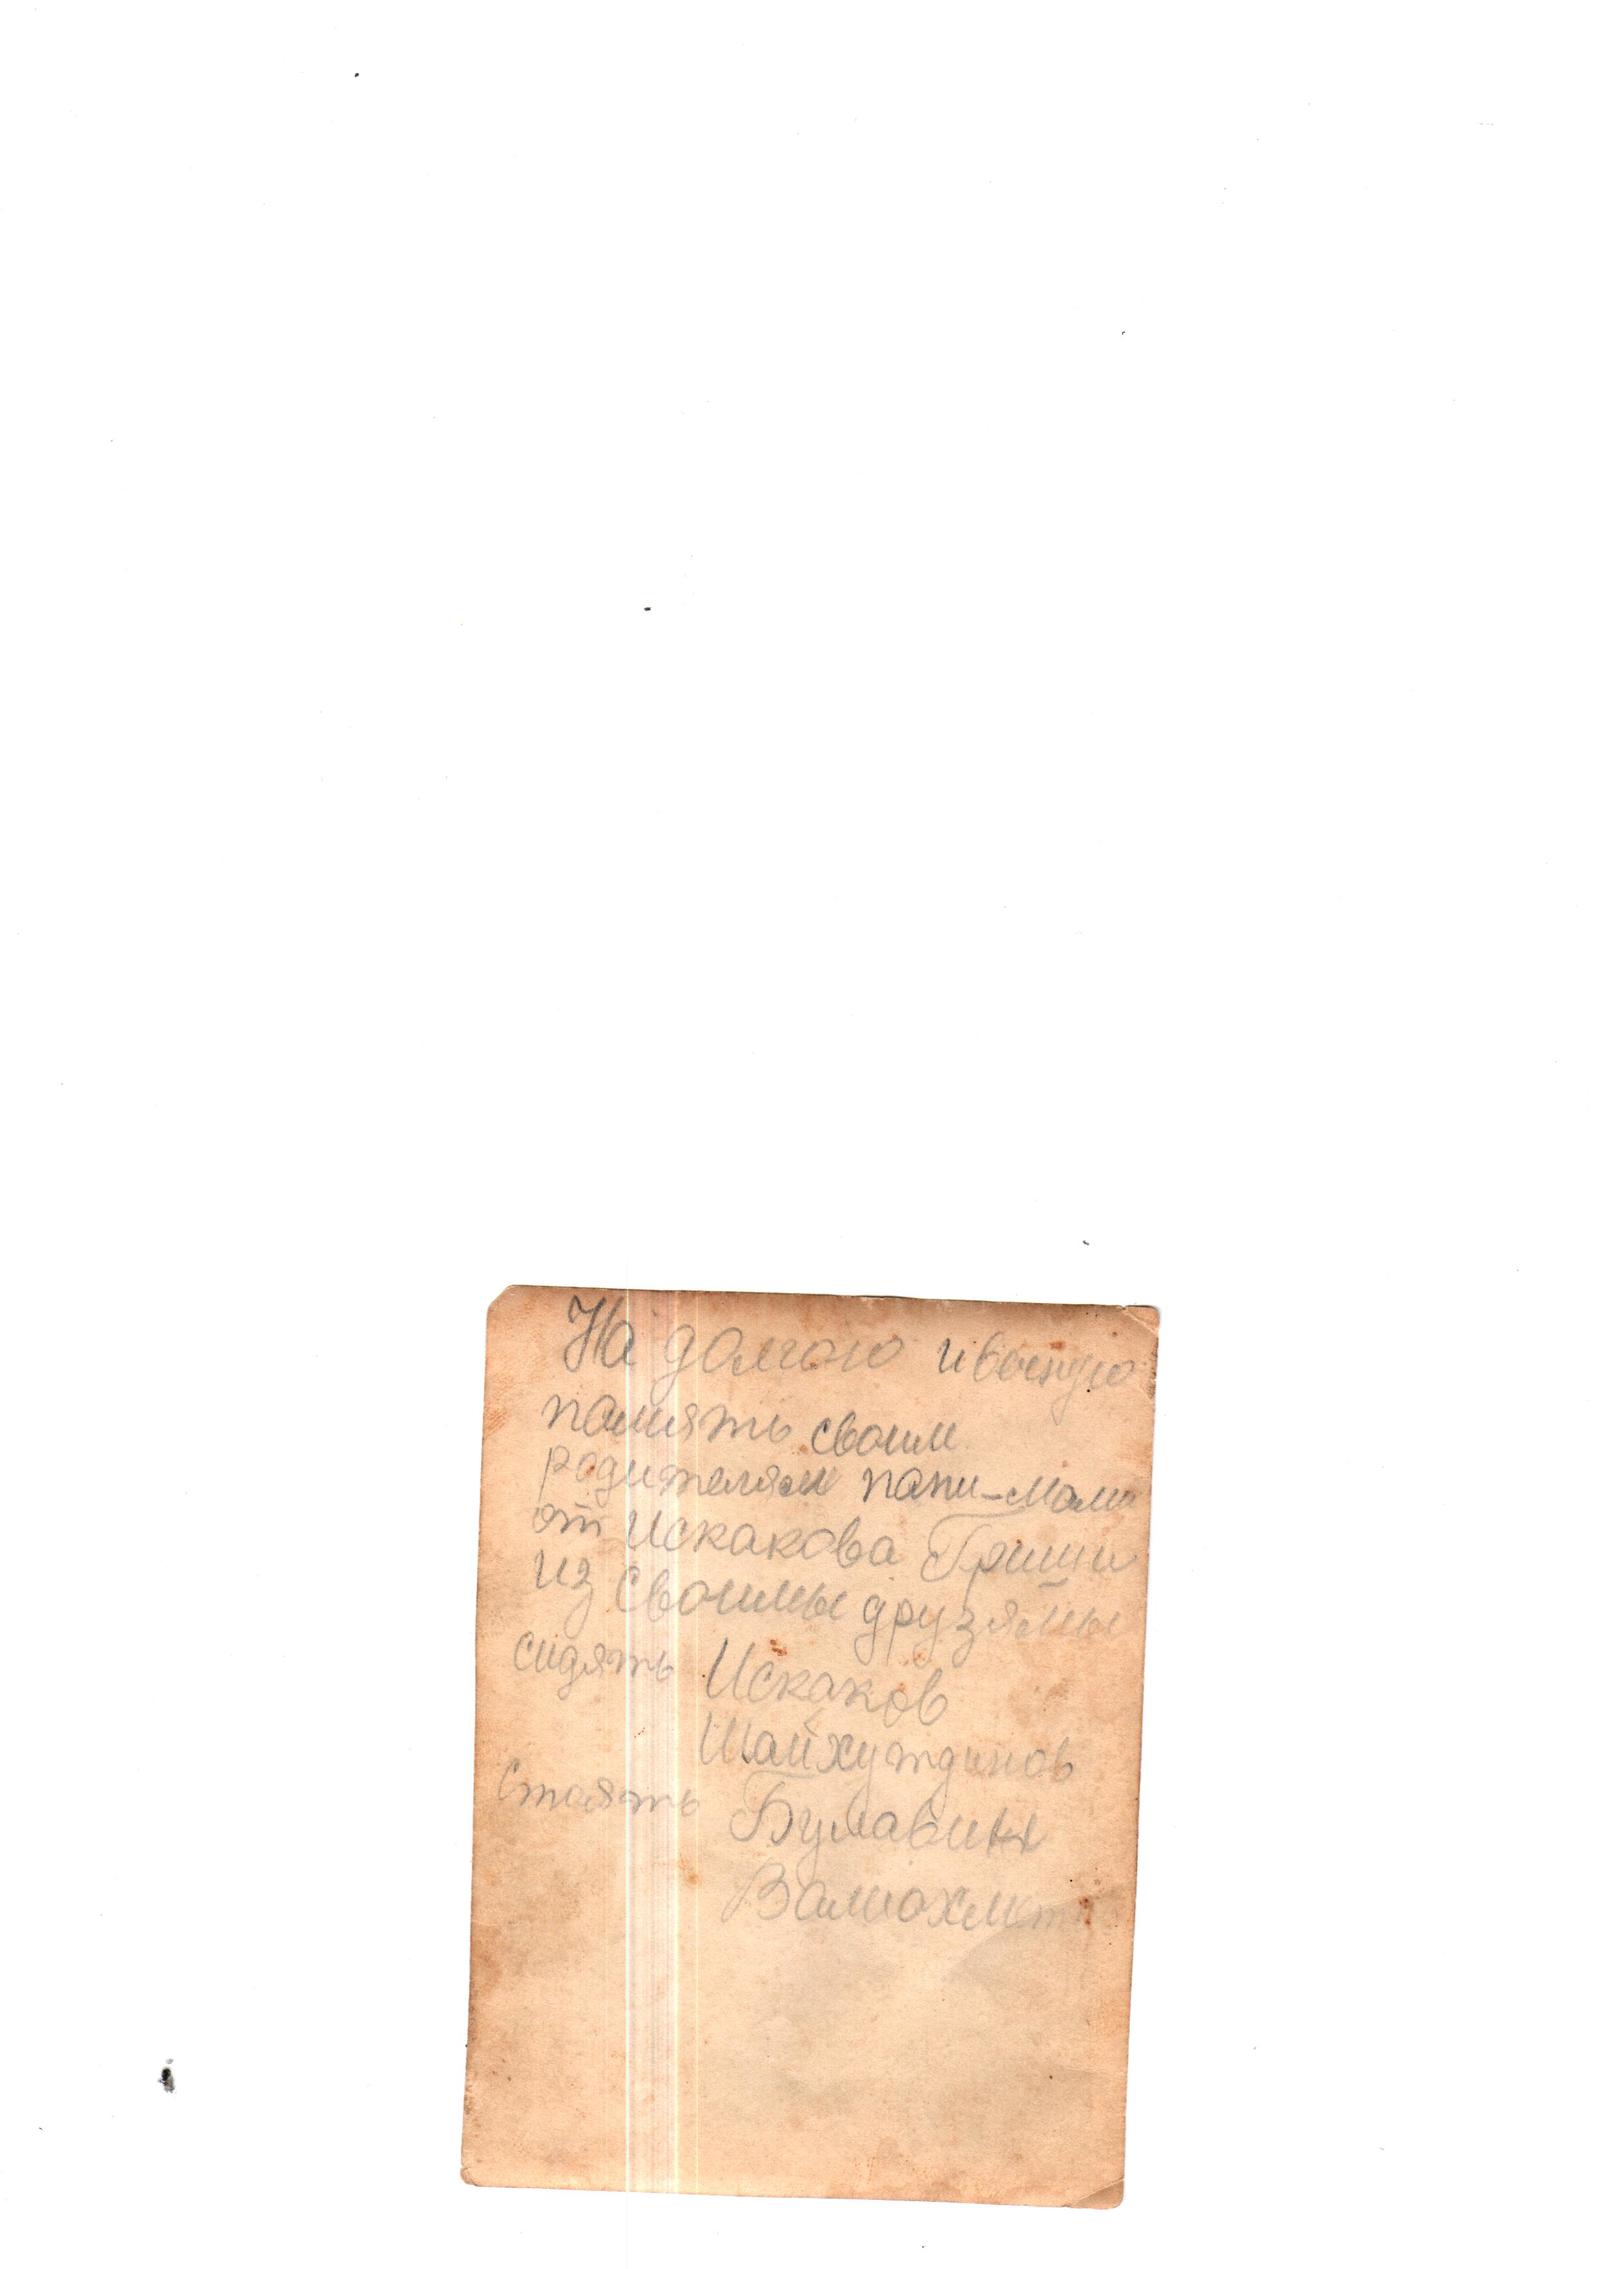 На долгою и вечную
память своим
родителям папи-мами
от Искакова Гриши
из своимы друзямы
сидять Искаков
Шайхутдинов
стоять Булавин